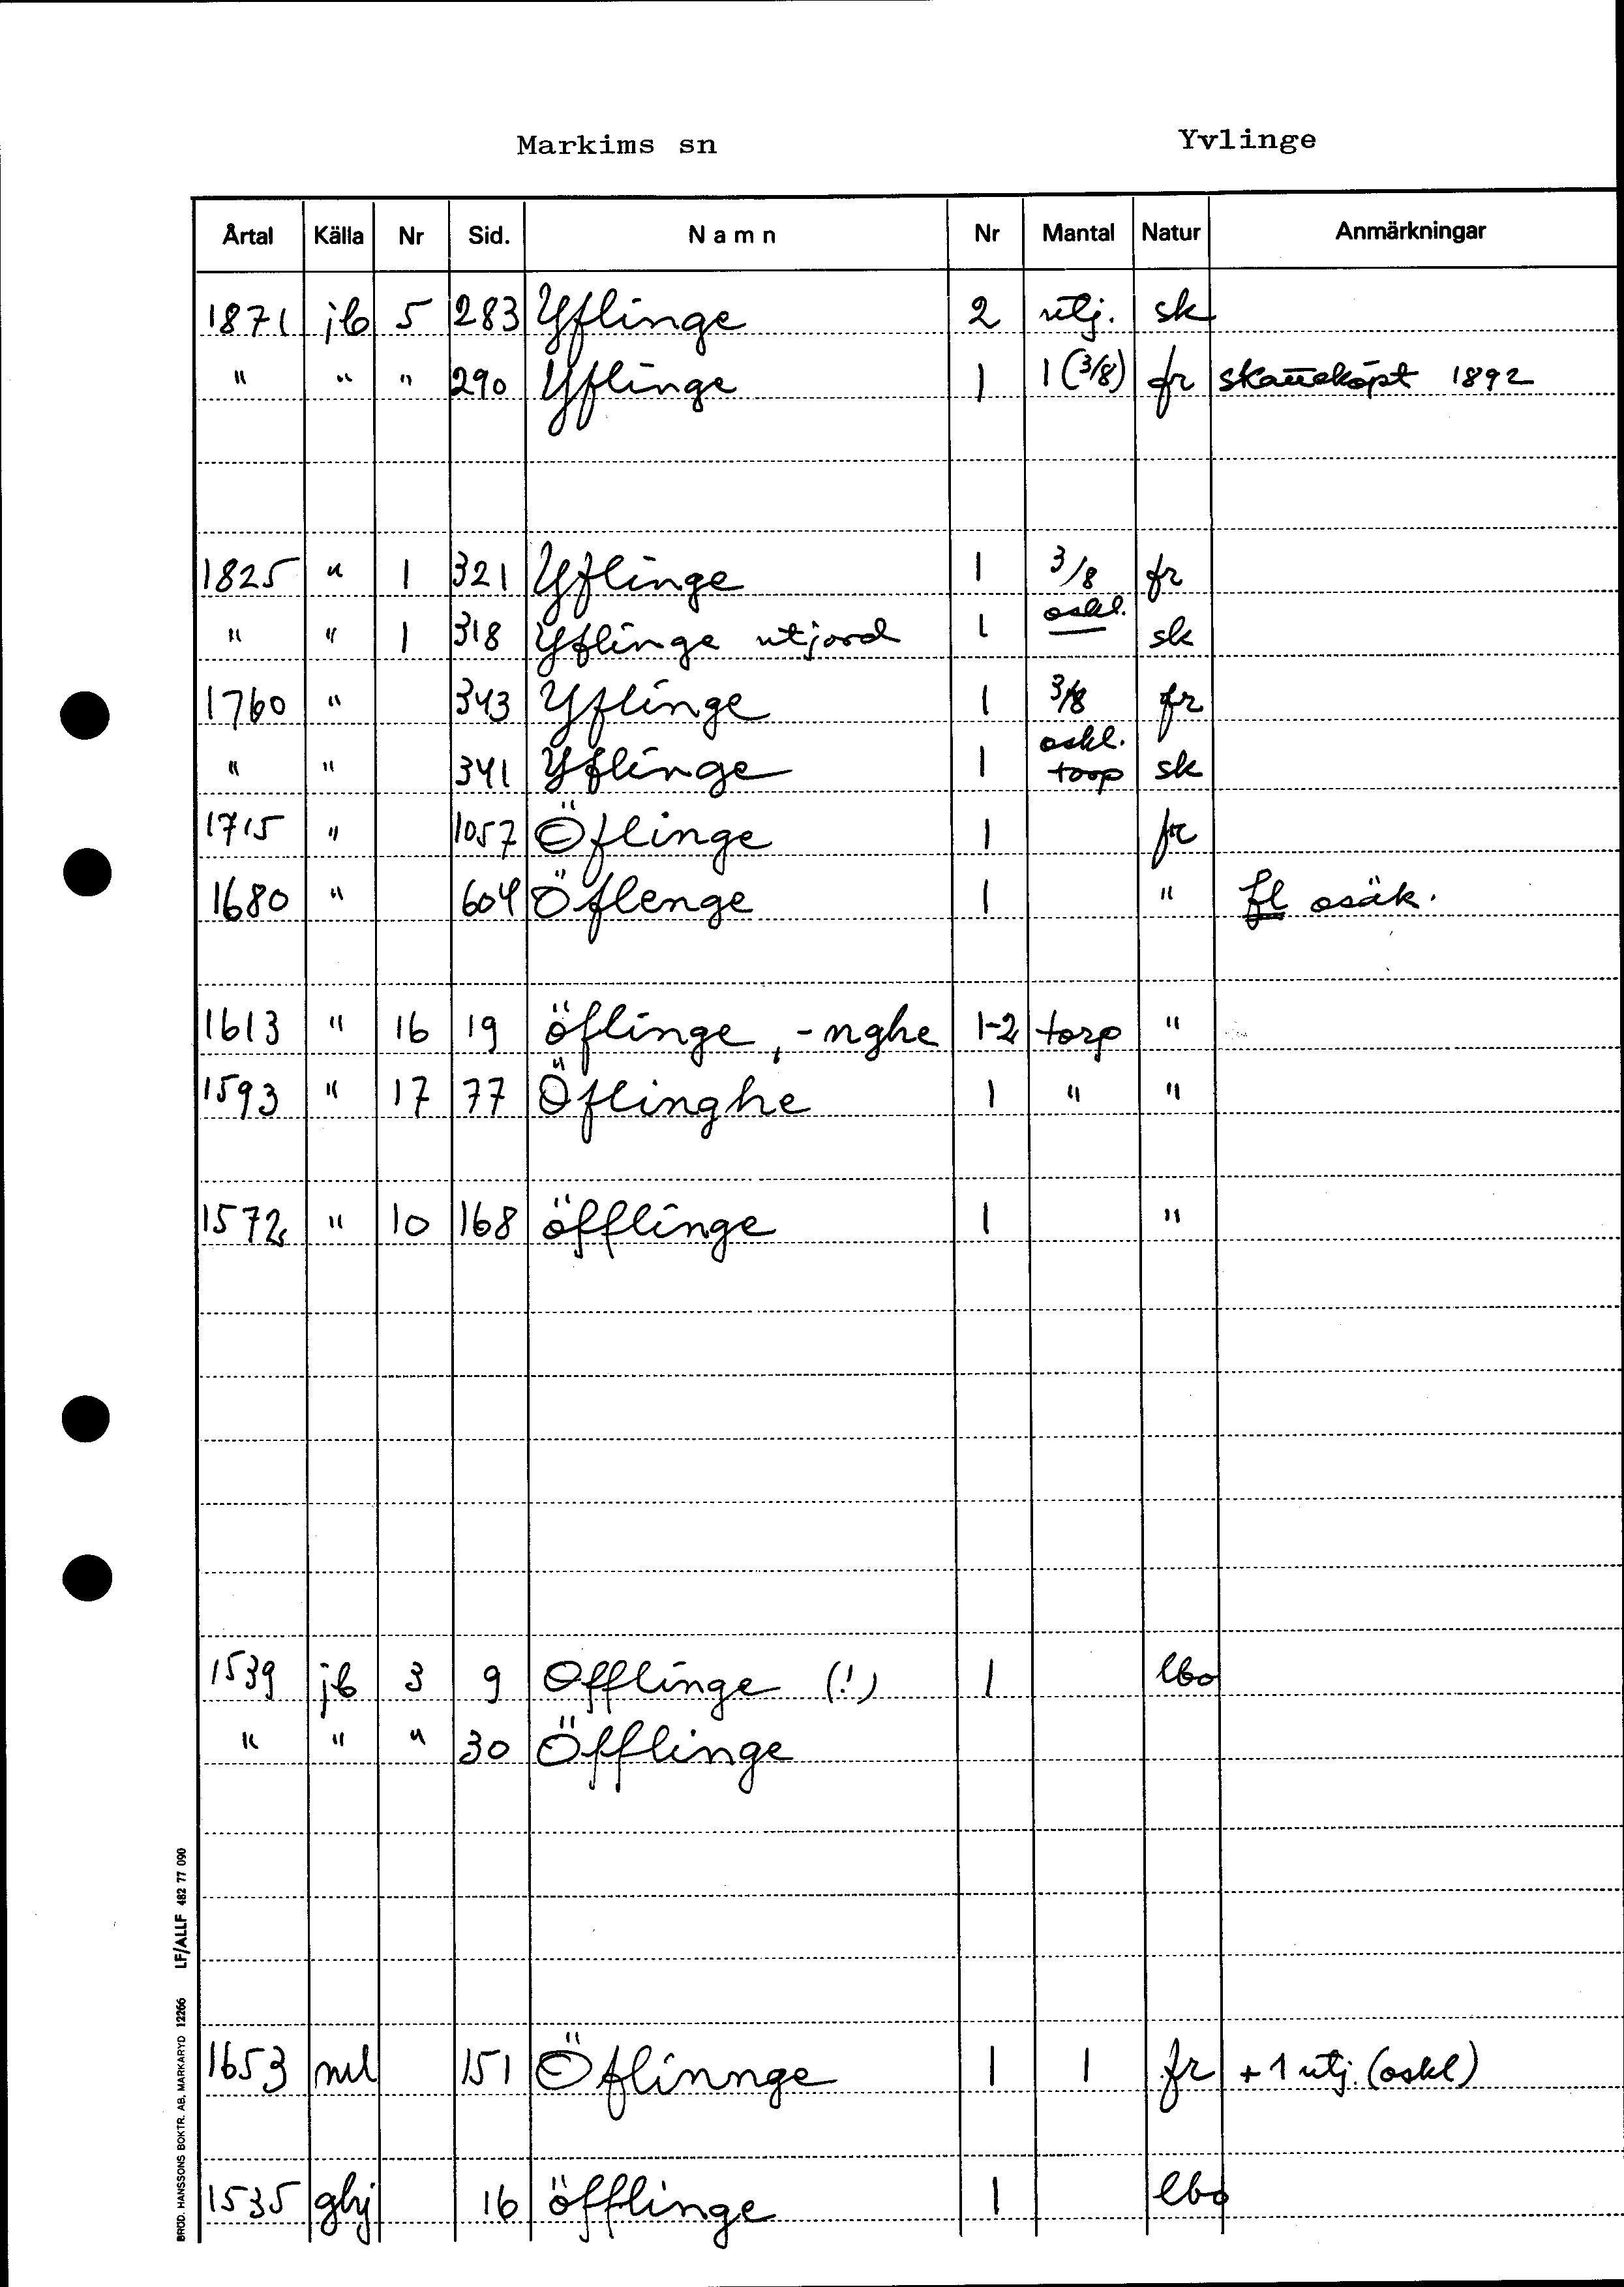 Markims sn Yvlinge
Årtal Källa Nr Sid. Namn Nr Mantal Natur Anmärkningar
1871 jb 5 283 Yflinge 2 utj. sk
" " " 290 Yflinge 1 1 (3/8) fr skatteköpt 1892
1825 " 1 321 Yflinge 1 3/8 fr
" " 1 318 Yflinge utjord 1 oskl. sk
1760 " 343 Yflinge 1 3/8 fr
" " 341 Yflinge 1 oskl. torp sk
1715 " 1057 Öflinge 1 fr
1680 " 604 Öflenge 1 " fl osäk.
1613 " 16 19 öflinge, -nghe 1-2 torp "
1593 " 17 77 Öflinghe 1 " "
1572 " 10 168 öfflinge 1 "
1539 jb 3 9 Offlinge (!) 1 lbo
" " " 30 Öfflinge
1653 ml 151 Öflinnge 1 1 fr + 1 utj. (oskl)
1535 ghj 16 öfflinge 1 lbo
BROD. HANSSONS BOKTR. AB. MARKARYD 12266 LF/ALLF 482 77 090